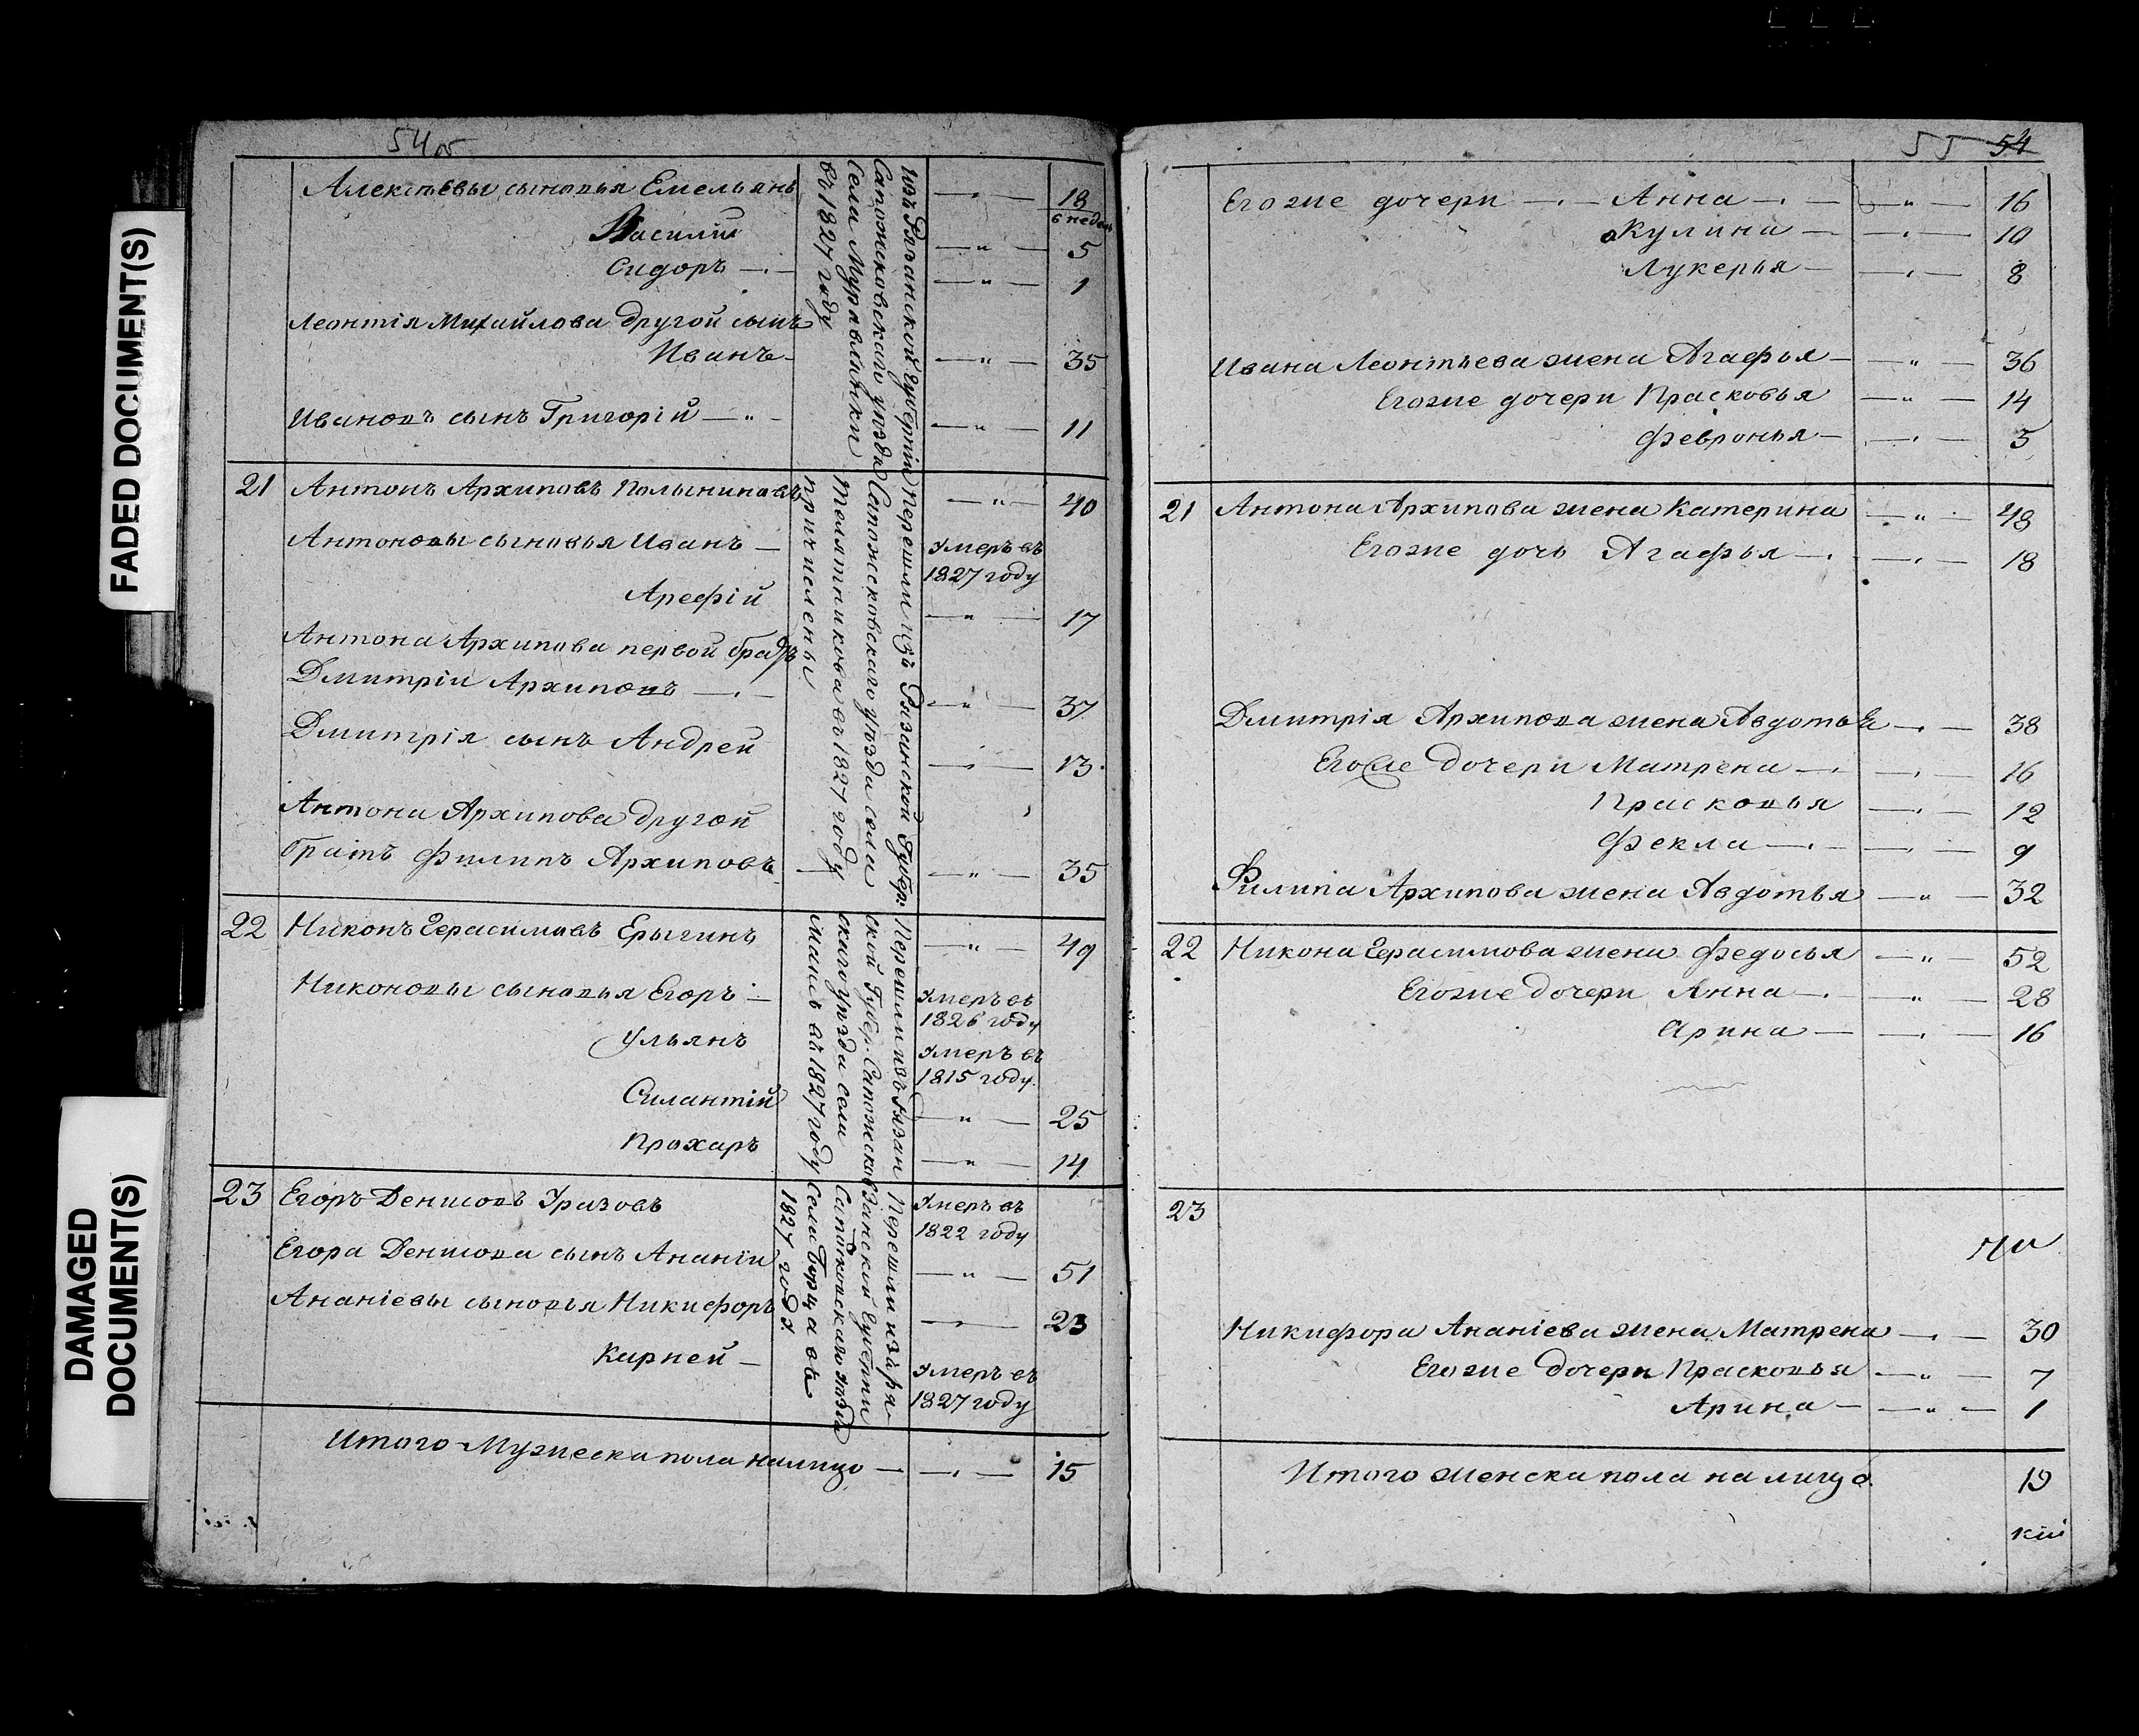 FADED DOCUMENT(S)
DAMAGED
DOCUMENT(S)
54об
Алексѣевы сыновья Емельянъ — 18
6 недель
Василий — " — 5
Сидоръ — " — 1
Леонтія Михайлова другой сынъ
Иванъ — " — 35
Ивановъ сынъ Григорій — " — 11
изъ Рязанской Губерніи
Сапожковскаго уѣзда
Села Муравлянки
въ 1827 году
21 Антонъ Архиповъ — " — 40
Антоновы сыновья Иванъ — Умеръ въ
1827 году
Арефій — " — 17
Антона Архипова первой братъ
Дмитрій Архиповъ — " — 37
Дмитрія сынъ Андрей — 13
Антона Архипова другой
братъ Филипъ Архиповъ — " — 35
Перешли изъ Рязанской Губер:
Сапожковскаго уѣзда села
въ 1827 году
причислены
22 Никонъ Герасимовъ Ерыгинъ — " — 49
Никоновы сыновья Егоръ — Умеръ въ
1826 году
Ульянъ Умеръ въ
1815 году
Силантій — " — 25
Прохаръ — " — 14
Перешли изъ Рязан
ской Губер. Сапожков
скаго уѣзда села
въ 1827 году
23 Егоръ Денисовъ Умеръ въ
1822 году
Егора Денисова сынъ Ананій — " — 51
Ананіевы сыновья Никифоръ — 23
Карней — Умеръ въ
1827 году
Перешли изъ Ря
занской Губерніи
Сапожковскаго уѣзда
Села Борца въ
1827 году
Итого Мужеска пола налицо — 15
55 54
Егоже дочери — Анна — " — 16
Акулина — 10
Лукерья — 8
Ивана Леонтьева жена Агафья — " — 36
Егоже дочери Прасковья — " — 14
Февронья — 3
21 Антона Архипова жена Катерина — " — 48
Егоже дочь Агафья — 18
Дмитрія Архипова жена Авдотья — 38
Егоже дочери Матрена — 16
Прасковья — 12
Фекла — 9
Филипа Архипова жена Авдотья — " — 32
22 Никона Герасимова жена Федосья — " — 52
Егоже дочери Анна — " — 28
Арина — 16
23
Никифора Ананіева жена Матрена — 30
Егоже дочери Прасковья — " — 7
Арина — " — 1
Итого женска пола на лицо 19